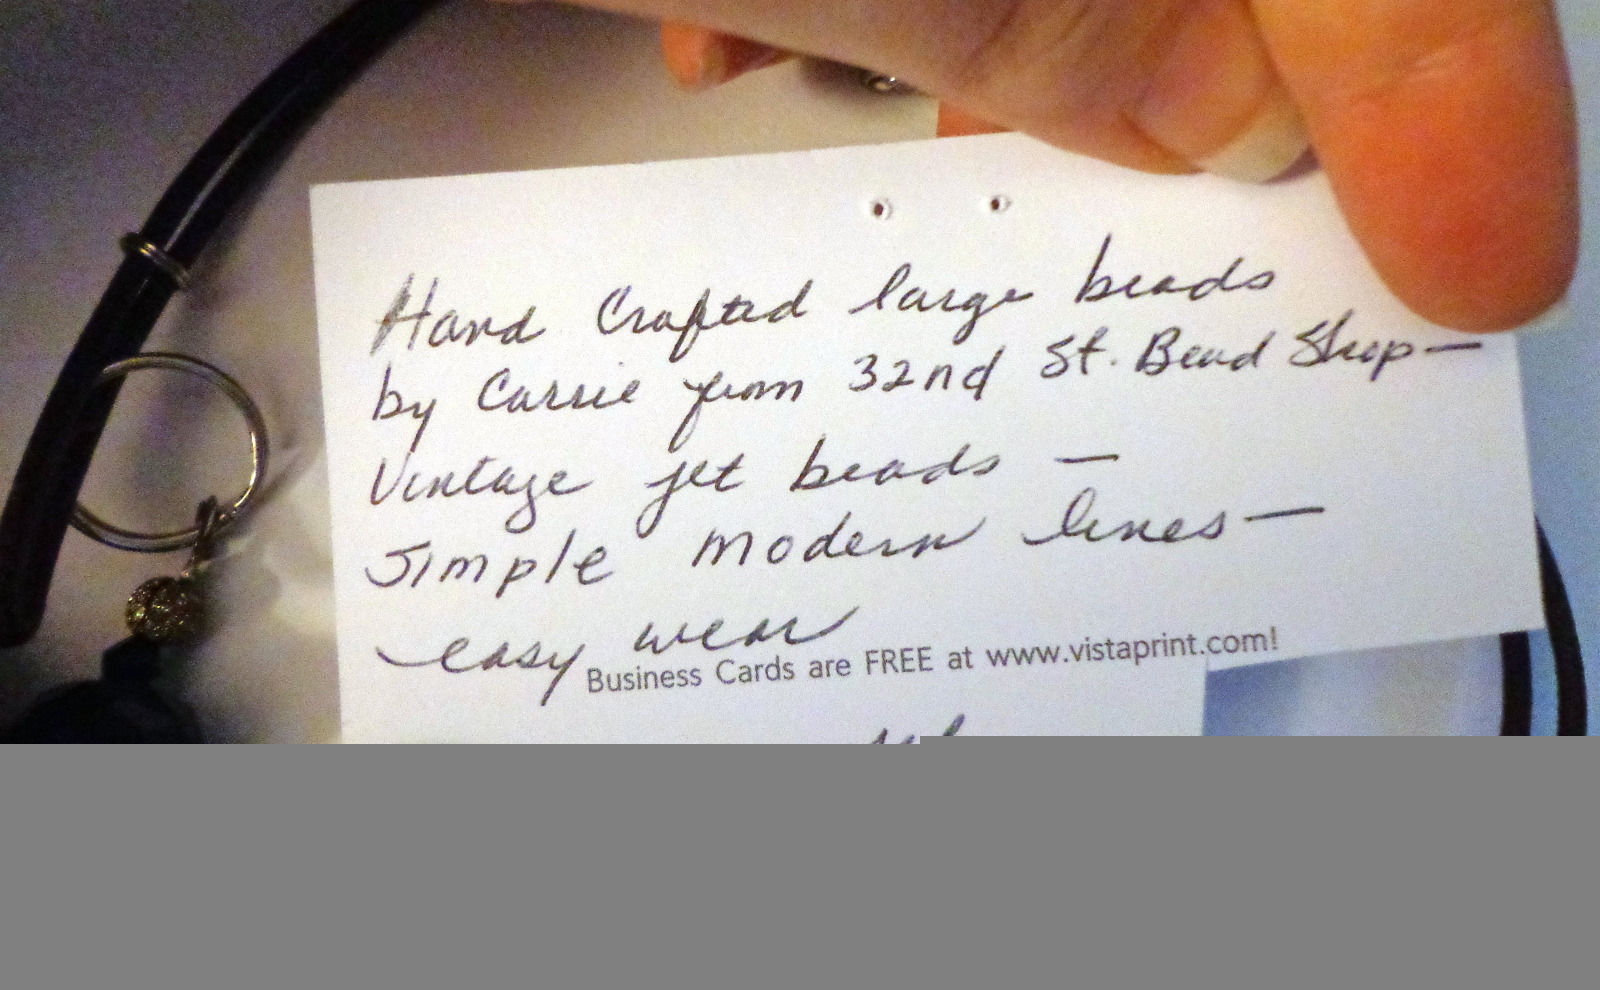 Hand Crafted large beads
by Carrie from 32nd St. Bead Shop—
Vintage jet beads —
Simple Modern lines —
easy wear
Business Cards are FREE at www.vistaprint.com!